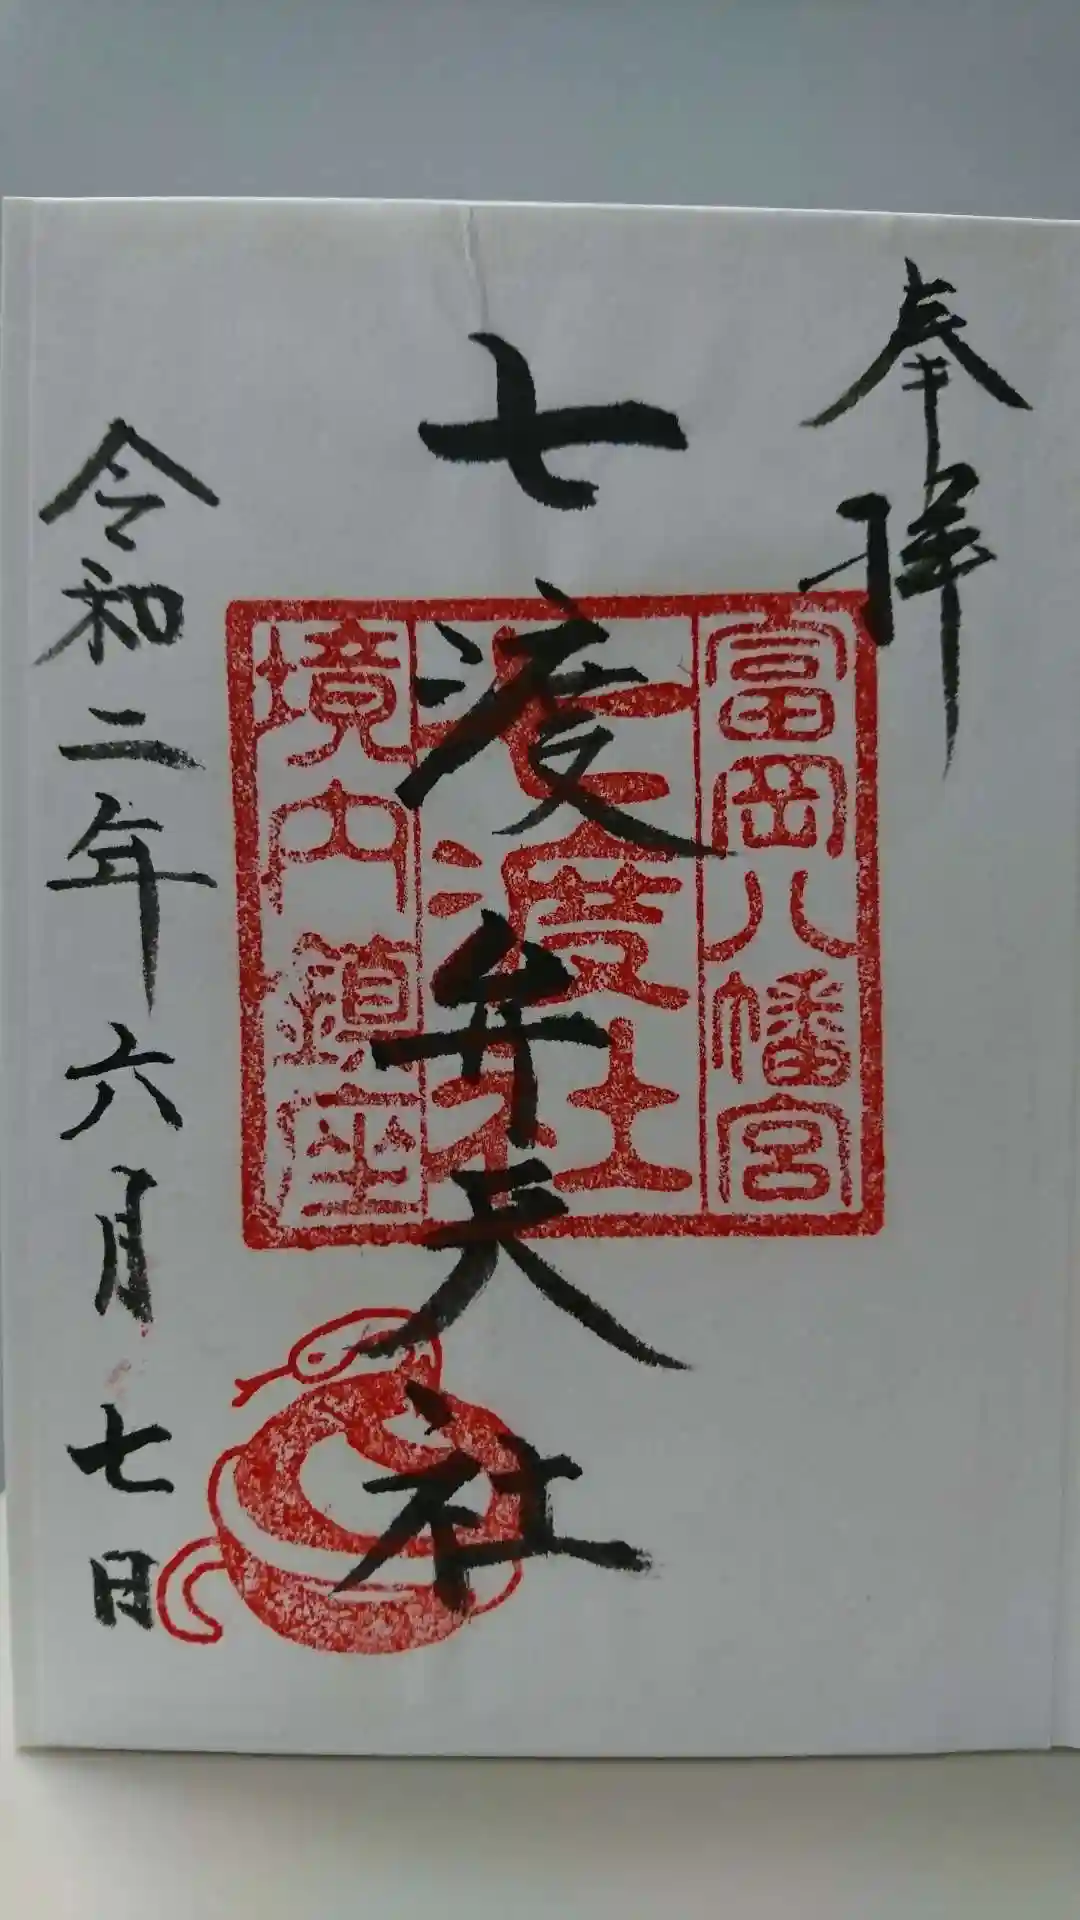 奉拝
富岡八幡宮
七渡弁天社
七渡社
境内鎮座
令和二年六月七日